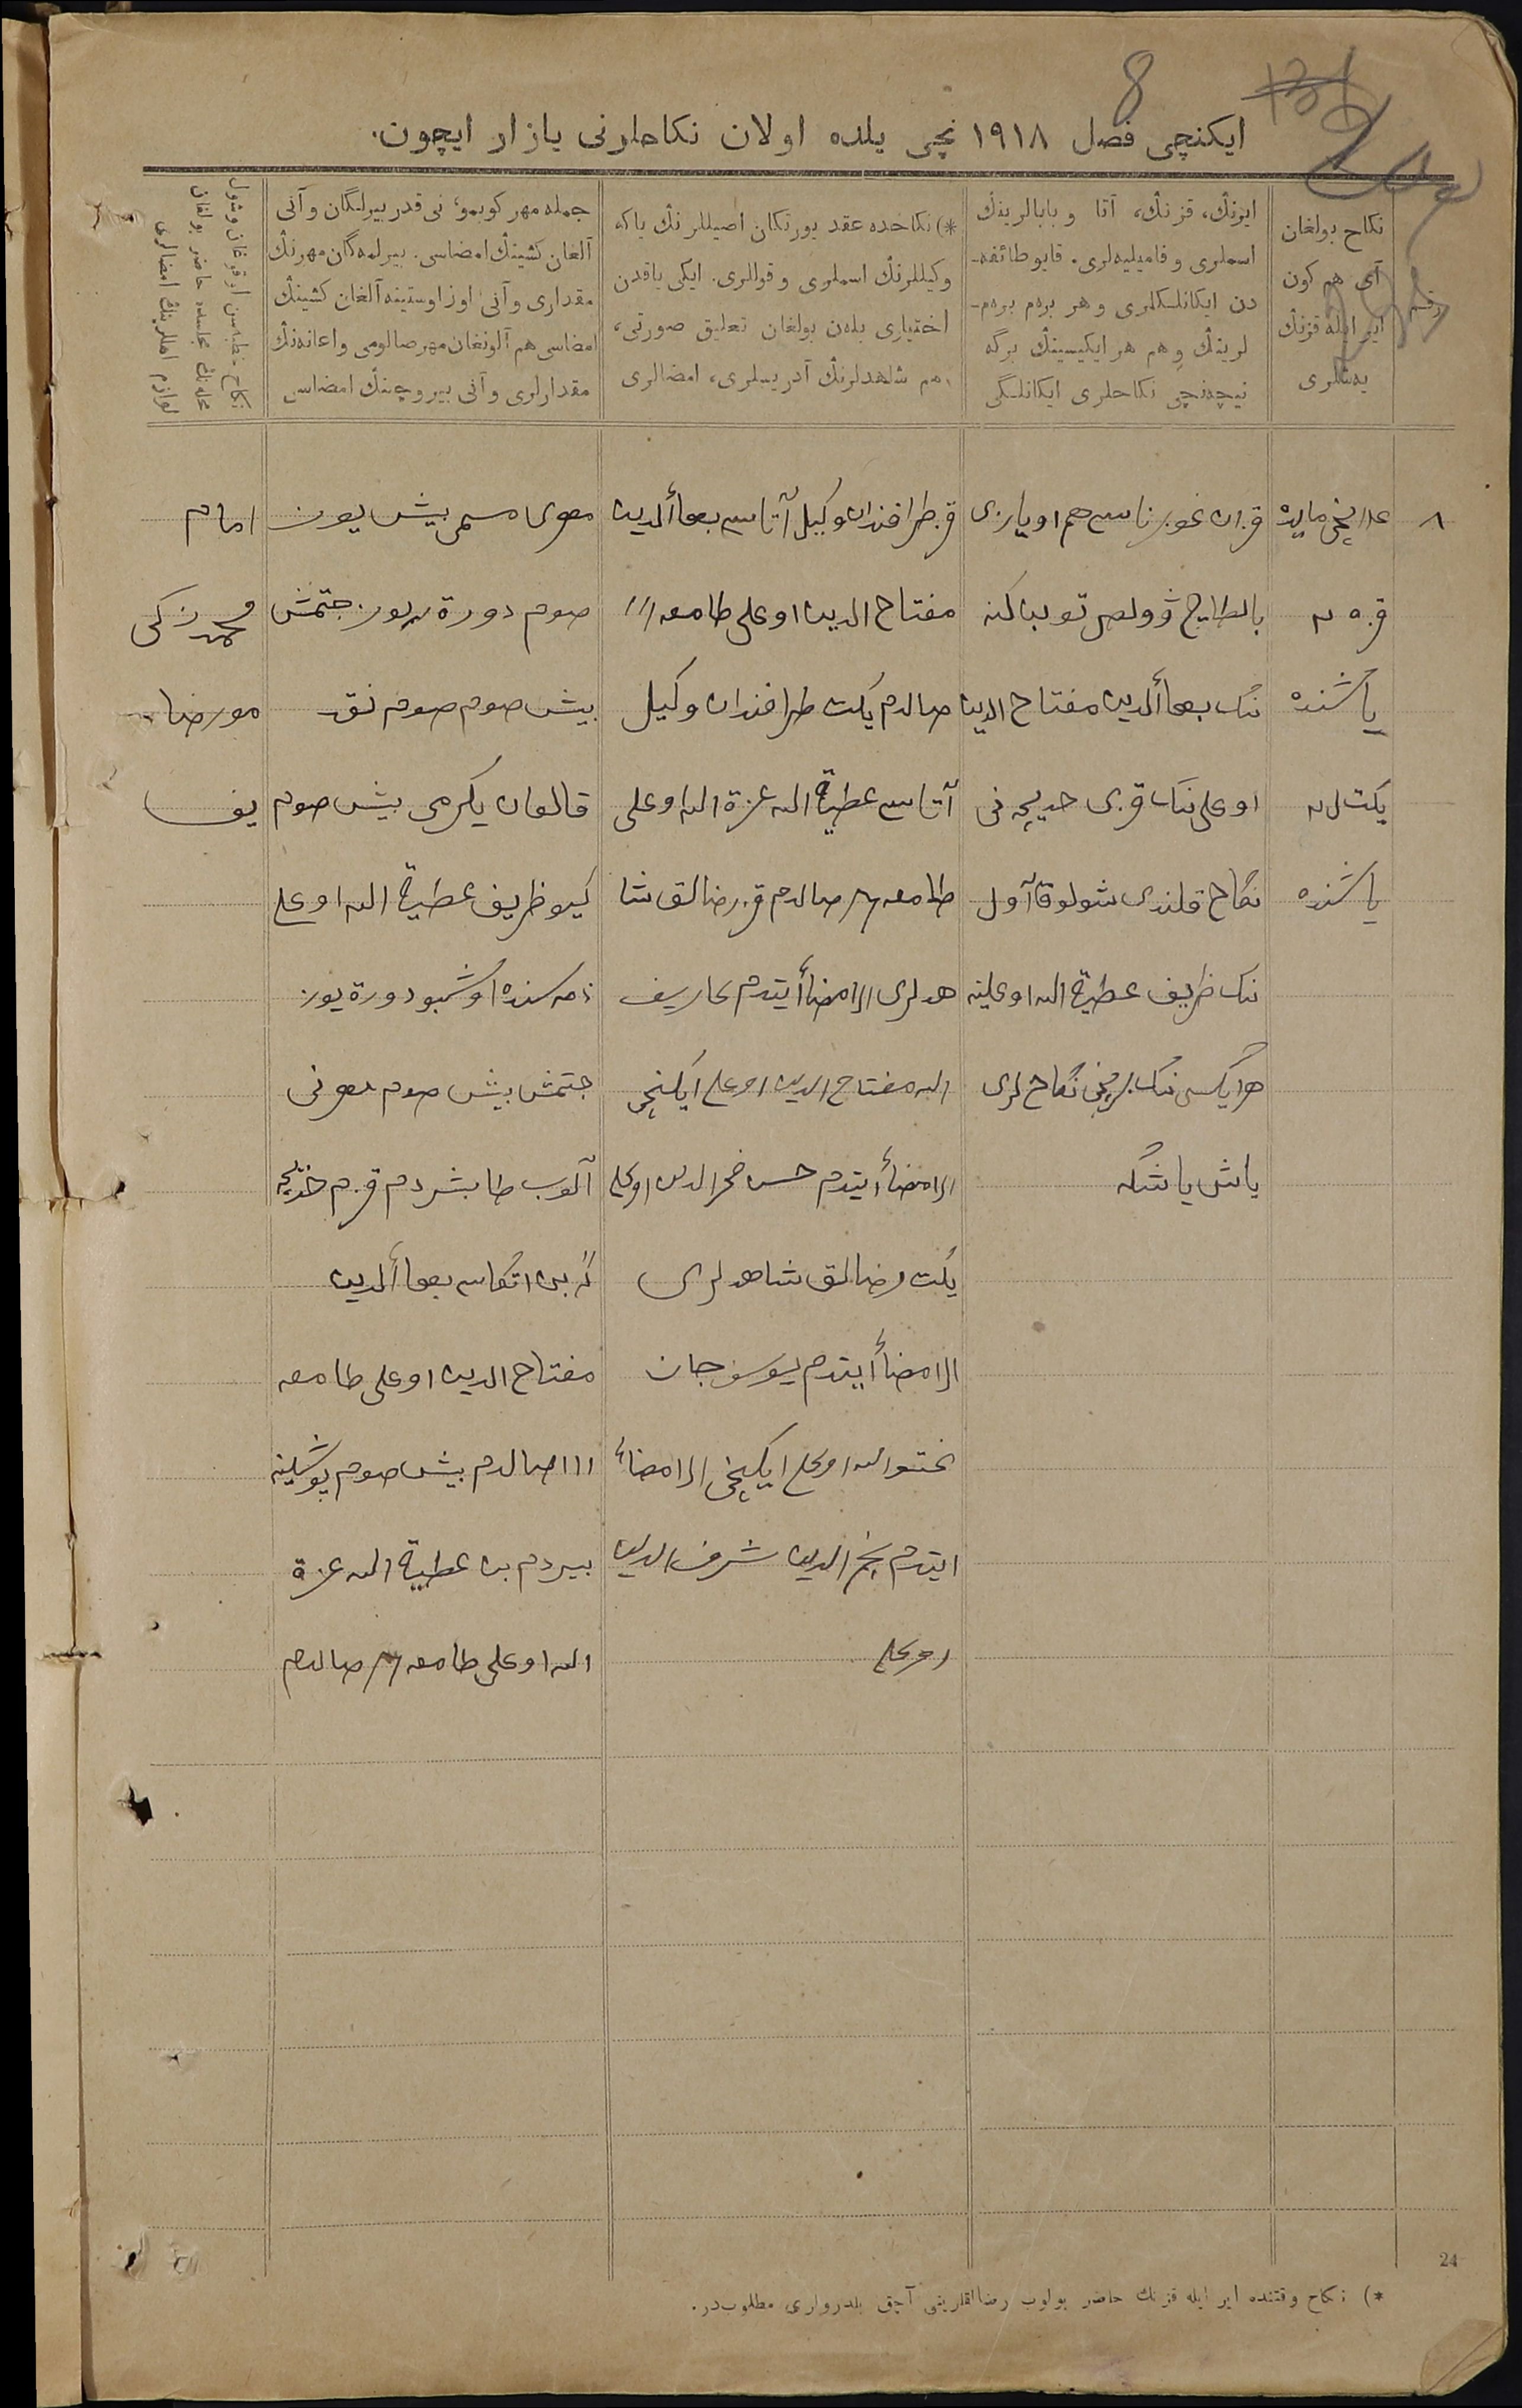 8
ایکنچی فصل ۱۹۱۸ نچی یلده اولان نکاحلرنی یازار ایچون.
رقم
نکاح بولغان
آی هم کون
ایر ایله قزنڭ
یەشلری
ایرنڭ، قزنڭ، آتا و بابالرینڭ
اسملری و فامیلیەلری. قایو طائفه‌-
دن ایکانلسکلری و هر برەم برەم-
لرینڭ و هم هر ایکیسینڭ برگه
نیچەنچی نکاحلری ایکانلگی
*) نکاحده عقد یورتکان اصیللرنڭ یاکه
وکیللرنڭ اسملری و قوللری. ایکی یاقدن
اختیاری بلەن بولغان تعلیق صورتی،
هم شاهدلرنڭ آدریسلری، امضالری
جمله مهر کوبمو، نی قدر بیرلگان و آنی
آلغان کشینڭ امضاسی. بیرلمەگان مهرنڭ
مقداری و آنی اوز اوستینه آلغان کشینڭ
امضاسی هم آلونغان مهر صالومی و اعانەنڭ
مقدارلری و آنی بیروچینڭ امضاسی
نکاح خطبه‌سن اوقوغان و شول
محلەنڭ مجلسده حاضر بولغان
لوازم اهللرینڭ امضالری
۸
نچی مایده
یاشنده
یکت
یاشنده
قزان غوبرناسی هم اویازی
بالطاچ وولصی
ننک بهاألدین مفتاح الدین
اوغلی ننک قزی خدیجه نی
نکاح قلندی شولوق آول
ننک ظریف عطیة الله اوغلینه
هر ایکسی ننک برنچی نکاح لری
یاش یاشکه
قز طرافندان وکیل آتاسی بهاألدین
مفتاح الدین اوغلی طامغه ااا
صالدم یکت طرافندان وکیل
آتاسی عطیة الله عزة الله اوغلی
طامغه صالدم قز رضالق شا
هدلری الامضأ ایتدم عاریف
الله مفتاح الدین اوغلی ایکنچی
الامضأ ایتدم حسن فخرالدین اوغلی
یکت رضالق شاهدلری
الامضأ ایتدم یوسوجان
اوغلی ایکنچی الامضأ
ایتدم نجم الدین شرف الدین
اوغلی
مهری مسمی بیش یوز
صوم دورة یوز جتمش
بیش صوم صوم نقد
قالغان یکرمی بیش صوم
کیو ظریف عطیة الله اوغلی
ذمه سنده اوشبو دورة یوز
جتمش بیش صوم مهرنی
آلوب طابشردم قزم خدیجه
گه بن اتکاسی بهاألدین
مفتاح الدین اوغلی طامغه
ااا صالدم بیش صوم پوشلینه
بیردم بن عطیة الله عزة
الله اوغلی طامغه صالدم
امام
محمد زکی
مورضا
یف
24
*) نکاح وقتنده ایر ایله قزنڭ حاضر بولوب رضالقلرینی آچق بلدرولری مطلوبدر.